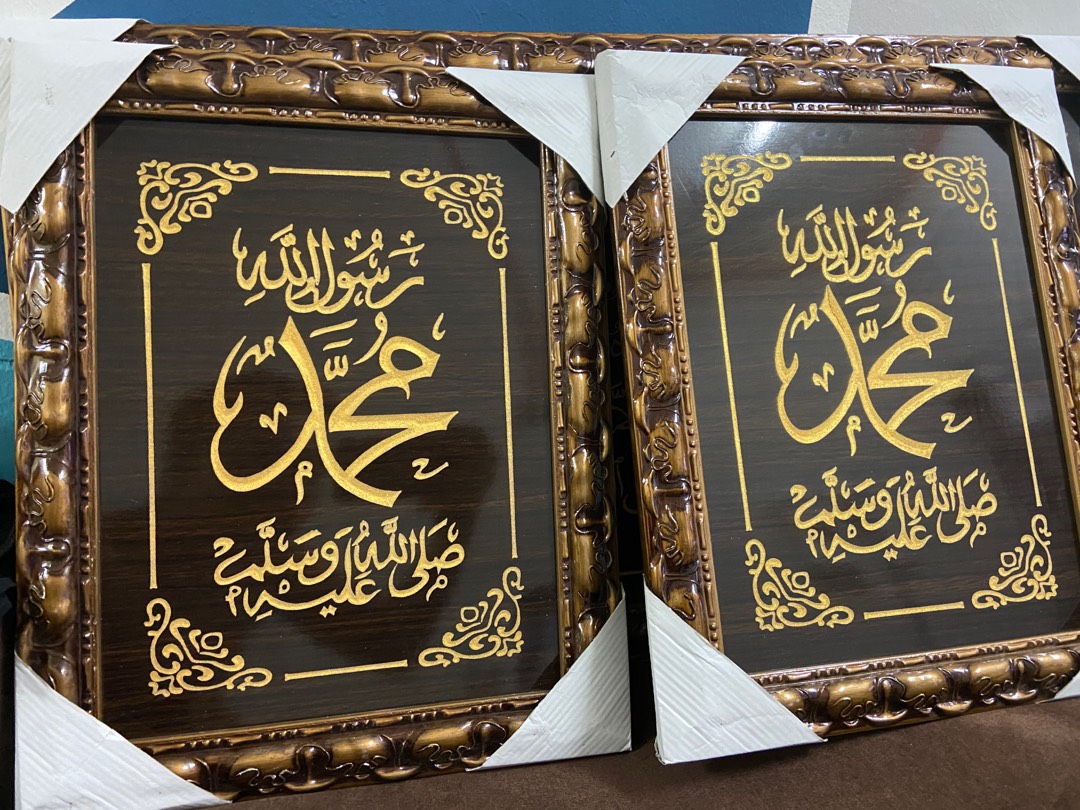 رَسُولُ اللَّهِ
مُحَمَّدٌ
صَلَّى اللَّهُ عَلَيْهِ وَسَلَّمَ
رَسُولُ اللَّهِ
مُحَمَّدٌ
صَلَّى اللَّهُ عَلَيْهِ وَسَلَّمَ